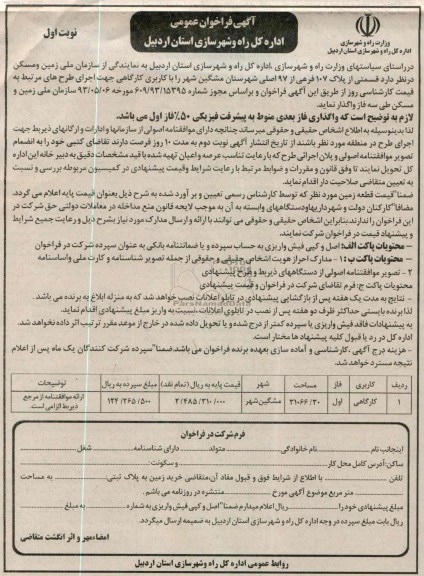 آگهی فراخوان عمومی
اداره کل راه وشهرسازی استان اردبیل
نوبت اول
وزارت راه و شهرسازی
اداره کل راه و شهرسازی استان اردبیل
درراستای سیاستهای وزارت راه و شهرسازی ،اداره کل راه و شهرسازی استان اردبیل به نمایندگی از سازمان ملی زمین ومسکن
درنظر دارد قسمتی از پلاک ۱۰۷ فرعی از ۹۷ اصلی شهرستان مشگین شهر را با کاربری کارگاهی جهت اجرای طرح های مرتبط به
قیمت کارشناسی روز از طریق این آگهی فراخوان و براساس مجوز شماره ۶۰۹/۹۳/۱۵۳۹۵ مورخه ۹۳/۰۵/۰۶ سازمان ملی زمین و
مسکن طی سه فاز واگذار نماید.
لازم به توضیح است که واگذاری فاز بعدی منوط به پیشرفت فیزیکی ۵۰٪ فاز اول می باشد.
لذا بدینوسیله به اطلاع اشخاص حقیقی و حقوقی میرساند چنانچه دارای موافقتنامه اصولی از سازمانها و ادارات و ارگانهای ذیربط جهت
اجرای طرح در منطقه مورد نظر باشند از تاریخ انتشار آگهی نوبت دوم به مدت ۱۰ روز فرصت دارند تقاضای کتبی خود را به انضمام
تصویر موافقتنامه اصولی و پلان اجرائی طرح که با رعایت تناسب عرصه و اعیان تهیه شده با قید مشخصات دقیق به دبیرخانه این اداره
کل تحویل نمایند تا وفق قانون و مقررات و ضوابط مرتبط با رعایت شرایط وقیمت پیشنهادی در کمیسیون مربوطه بررسی و نسبت
به تعیین متقاضی صلاحیت دار اقدام نماید.
ضمنا"قیمت قطعه زمین مورد نظر که توسط کارشناس رسمی تعیین و برآورد شده به شرح ذیل بعنوان قیمت پایه اعلام می گردد.
مضافا"کارکنان دولت و شهرداریهاودستگاههای وابسته به آن به موجب لایحه قانون منع مداخله در معاملات دولتی حق شرکت در
این فراخوان را ندارند.بنابراین اشخاص حقیقی و حقوقی می توانند با ارائه و ارسال مدارک مورد نیاز بشرح ذیل و رعایت جمیع شرایط
و پیشنهاد قیمت در فراخوان شرکت نمایند.
- محتویات پاکت الف: اصل و کپی فیش واریزی به حساب سپرده و یا ضمانتنامه بانکی به عنوان سپرده شرکت در فراخوان
- محتویات پاکت ب: ۱ - مدارک احراز هویت اشخاص حقیقی و حقوقی از جمله تصویر شناسنامه و کارت ملی واساسنامه
۲ - تصویر موافقتنامه اصولی از دستگاههای ذیربط و طرح پیشنهادی
محتویات پاکت ج: فرم تقاضای شرکت در فراخوان و قیمت پیشنهادی
- نتایج به مدت یک هفته پس از بازگشایی پیشنهادی در تابلو اعلانات نصب خواهد شد که به منزله ابلاغ به برنده می باشد.
لذا برنده بایستی حداکثر ظرف دو هفته پس از نصب در تابلوی اعلانات ،نسبت به واریز مبلغ پیشنهادی اقدام نماید.
به پیشنهادات فاقد فیش واریزی یا سپرده کمتر از درج شده و یا تحویل داده شده در خارج از موعد مقرر ترتیب اثر داده نخواهد شد.
اداره کل در رد یا قبول کلیه پیشنهادها مختار است.
- هزینه درج آگهی ،کارشناسی و آماده سازی بعهده برنده فراخوان می باشد.ضمنا"سپرده شرکت کنندگان یک ماه پس از اعلام
نتیجه مسترد خواهد شد.
ردیف کاربری فاز مساحت شهر قیمت پایه به ریال (تمام نقد) مبلغ سپرده به ریال توضیحات
۱ کارگاهی اول ۳۱۰۶۶/۳۰ مشگین شهر ۲/۴۸۵/۳۱۰/۰۰۰ ۱۲۴/۲۶۵/۵۰۰ ارائه موافقتنامه از مرجع ذیربط الزامی است.
فرم شرکت در فراخوان
اینجانب نام نام خانوادگی متولد دارای شناسنامه شغل
ساکن:آدرس کامل محل کار و سکونت:
تلفن با اطلاع از شرایط فوق و قبول مفاد آن،متقاضی خرید زمین به پلاک ثبتی به مساحت
متر مربع موضوع آگهی مورخ منتشره در روزنامه می باشم.
مبلغ پیشنهادی خود را ریال اعلام میدارم ضمنا" اصل و کپی فیش واریزی به شماره به مبلغ
ریال بابت مبلغ سپرده در وجه اداره کل راه و شهرسازی استان اردبیل به ضمیمه ارسال میگردد.
امضاءمهر و اثر انگشت متقاضی
روابط عمومی اداره کل راه وشهرسازی استان اردبیل